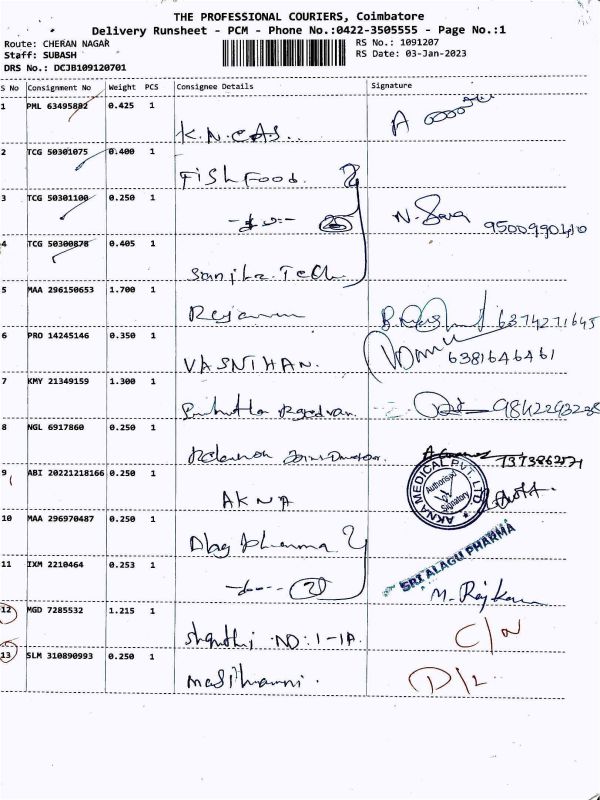 THE PROFESSIONAL COURIERS, Coimbatore
Delivery Runsheet - PCM - Phone No.:0422-3505555 - Page No.:1
Route: CHERAN NAGAR
RS No.: 1091207
Staff: SUBASH
RS Date: 03-Jan-2023
DRS No.: DCJB109120701
S No Consignment No Weight PCS Consignee Details Signature
1 PML 63495882 0.425 1 K.N.CAS..
2 TCG 50301075 0.400 1 FISh FOOD.
3 TCG 50301100 0.250 1 9500990410
4 TCG 50300878 0.405 1 Tech
5 MAA 296150653 1.700 1 6374271645
6 PRO 14245146 0.350 1 VASNTHAN. 6381646461
7 KMY 21349159 1.300 1
8 NGL 6917860 0.250 1
9 ABI 20221218166 0.250 1 AKNA
AKNA MEDICAL PVT. LTD
Authorised
Signatory
10 MAA 296970487 0.250 1 Pharma
SRI ALAGU PHARMA
11 IXM 2210464 0.253 1
12 MGD 7285532 1.215 1 NO: 1-1A C/N
13 SLM 310890993 0.250 1 D/L